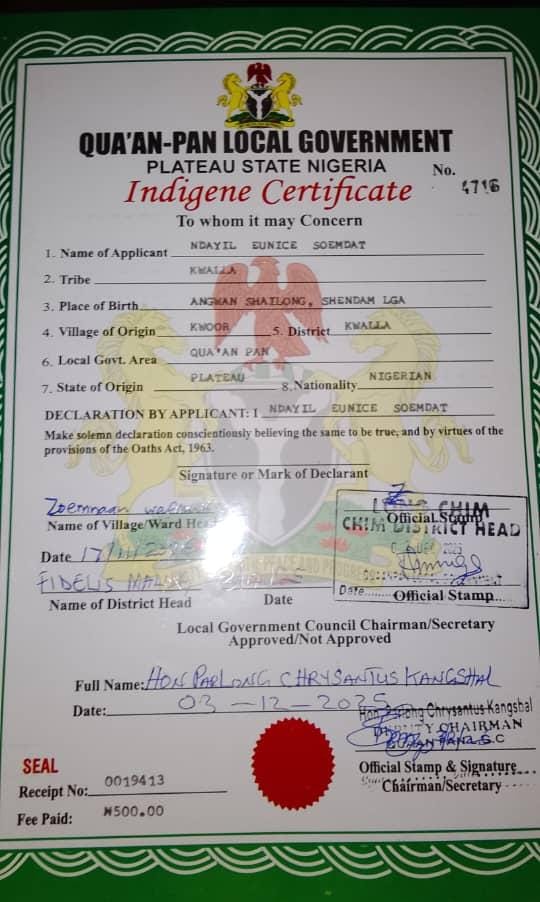 QUA'AN-PAN LOCAL GOVERNMENT
PLATEAU STATE NIGERIA
No. 4716
Indigene Certificate
To whom it may Concern
1. Name of Applicant NDAYIL EUNICE SOEMDAT
2. Tribe KWALLA
3. Place of Birth ANGWAN SHAILONG, SHENDAM LGA
4. Village of Origin KWOOR 5. District KWALLA
6. Local Govt. Area QUA'AN PAN
7. State of Origin PLATEAU 8. Nationality NIGERIAN
DECLARATION BY APPLICANT: I NDAYIL EUNICE SOEMDAT
Make solemn declaration conscientiously believing the same to be true, and by virtues of the
provisions of the Oaths Act, 1963.
Signature or Mark of Declarant
Name of Village/Ward Head
Official Stamp
CHIM
CHIM DISTRICT HEAD
Date 17/11/
FIDELIS
Date
Name of District Head Date Official Stamp
Local Government Council Chairman/Secretary
Approved/Not Approved
Full Name: HON PARLONG CHRYSANTUS KANGSHAL
Date: 03-12-2025
Hon Parlong Chrysantus Kangshal
DEPUTY CHAIRMAN
SEAL
Official Stamp & Signature
Receipt No: 0019413
Chairman/Secretary
Fee Paid: ₦500.00